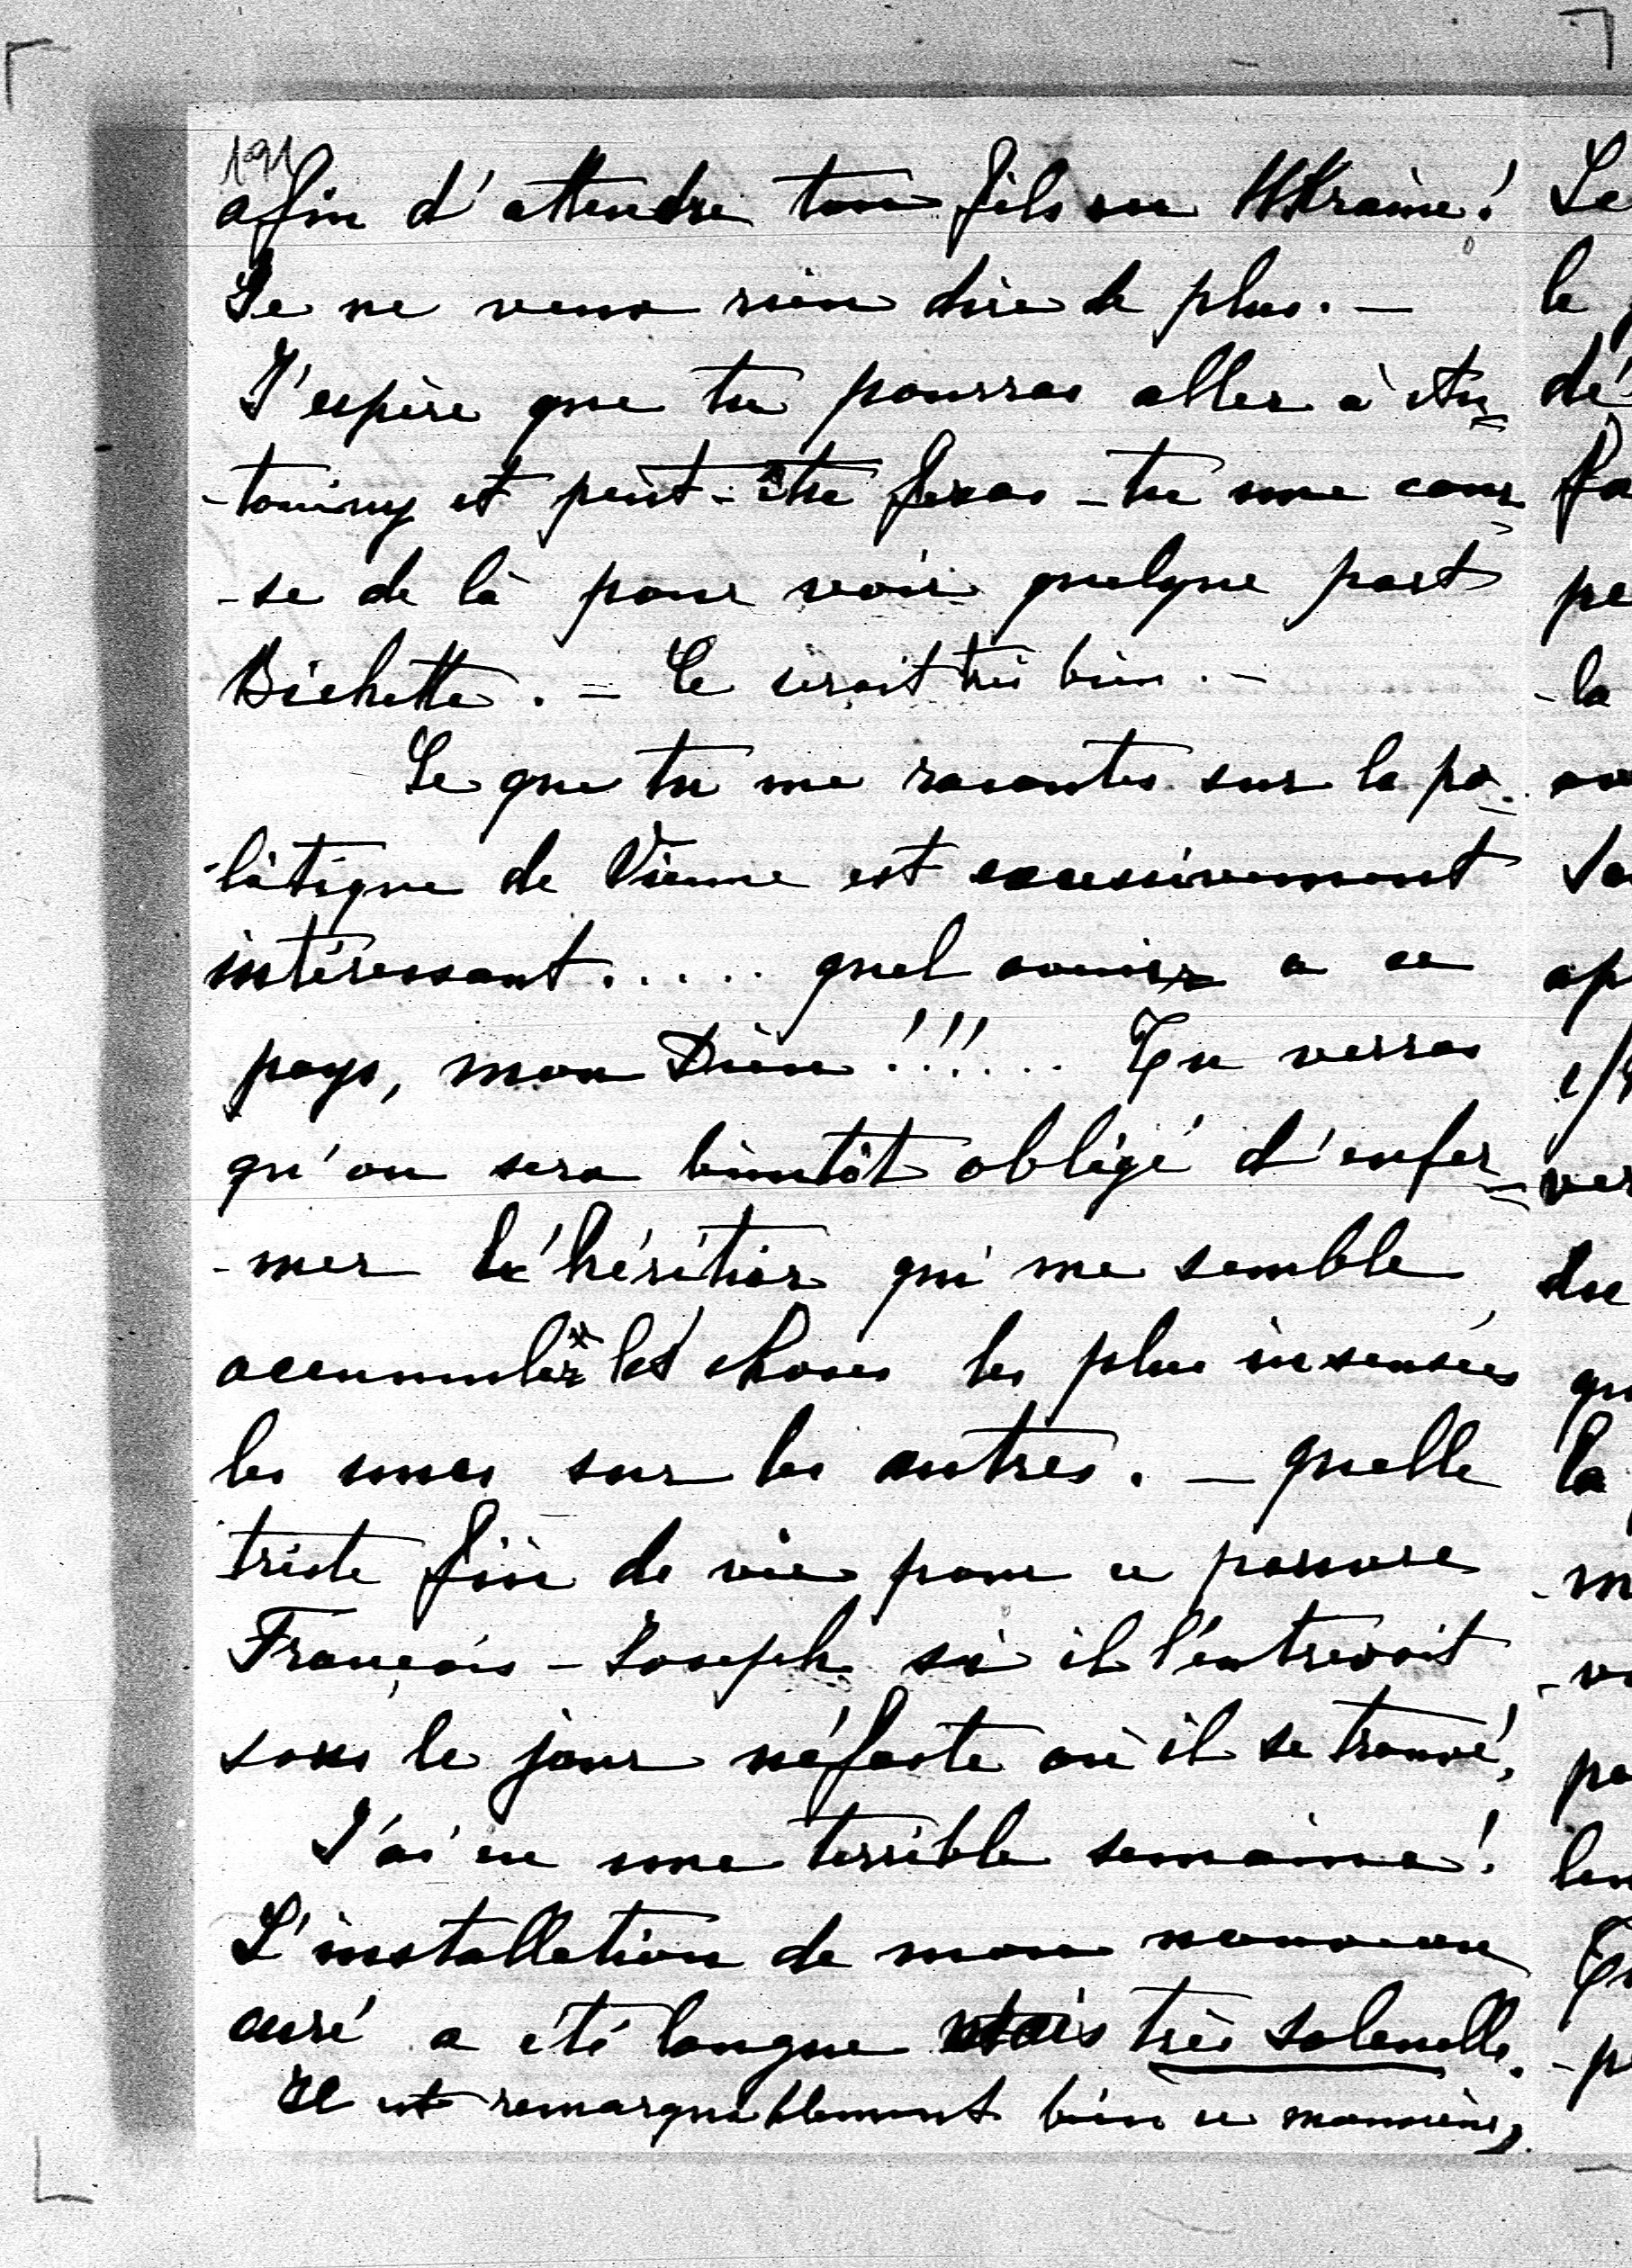 191
afin d'attendre ton fils en Ukraine!
Je ne veux rien dire de plus. —
J'espère que tu pourras aller à An
-toniny et peut-être feras-tu une cour
-se de là pour voir quelque part
Bichette. — Ce serait très bien. —
Ce que tu me racontes sur la po
-litique de Vienne est excessivement
intéressant..... quel avenir a ce
pays, mon Dieu!!!... Tu verras
qu'on sera bientôt obligé d'enfer
-mer l'héritier qui me semble
accumuler les choses les plus insensées
les unes sur les autres. — quelle
triste fin de vie pour ce pauvre
François-Joseph si il l'entrevoit
sous le jour néfaste où il se trouve!
J'ai eu une terrible semaine!
L'installation de mon nouveau
curé a été longue mais très solenelle.
Il est remarquablement bien ce monsieur,
Le
le
dé
fa
pe
-la
av
sa
ap
1/
ver
du
qu
la
-m
-vo
pa
len
Tu
-p